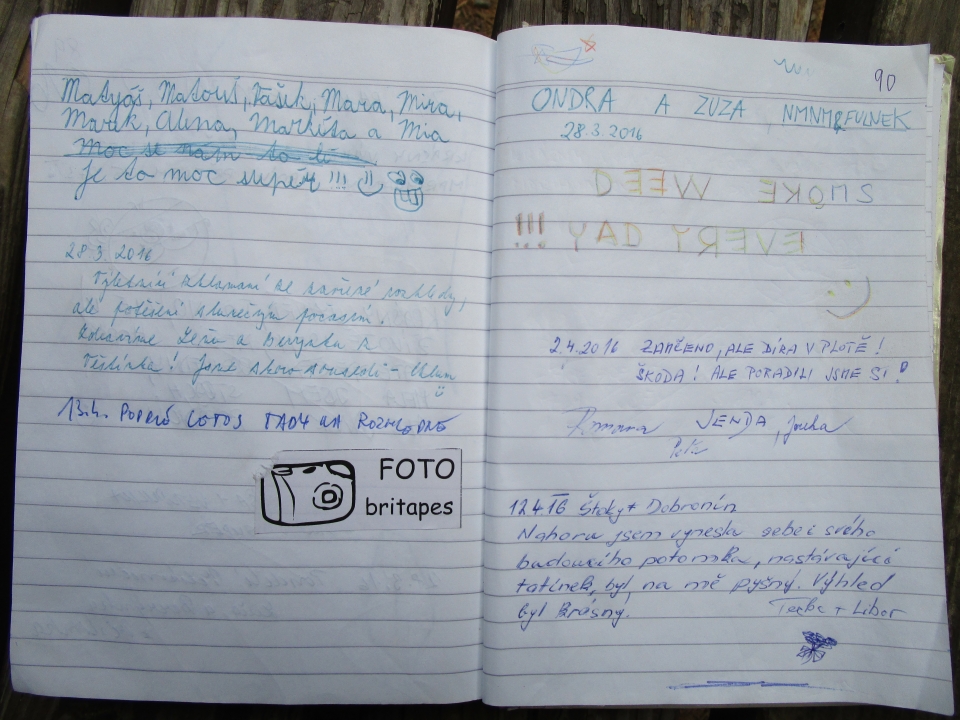 Matyáš, Matouš, Vašík, Mára, Míra,
Marek, Alena, Markéta a Mia
Moc se nám to lí
je to moc super !!!
28.3.2016
Výletníci zklamaní ze zavřené rozhledny,
ale potěšeni slunečným počasím.
Zdravíme a z
Těšínka! Jsme skoro sousedi -
13.4. LOTOS TADY NA ROZHLEDNĚ
FOTO
britapes
90
ONDRA A ZUZA NMNM&FULNEK
28.3.2016
SMOKE WEED
EVERY DAY !!!
2.4.2016 ZAMČENO, ALE DÍRA V PLOTĚ!
ŠKODA! ALE PORADILI JSME SI!
Romana JENDA,
Petr
12.4.16 Štoky + Dobronín
Nahoru jsem vynesla sebe i svého
budoucího potomka, nastávající
tatínek byl na mě pyšný. Výhled
byl krásný. Terka + Libor